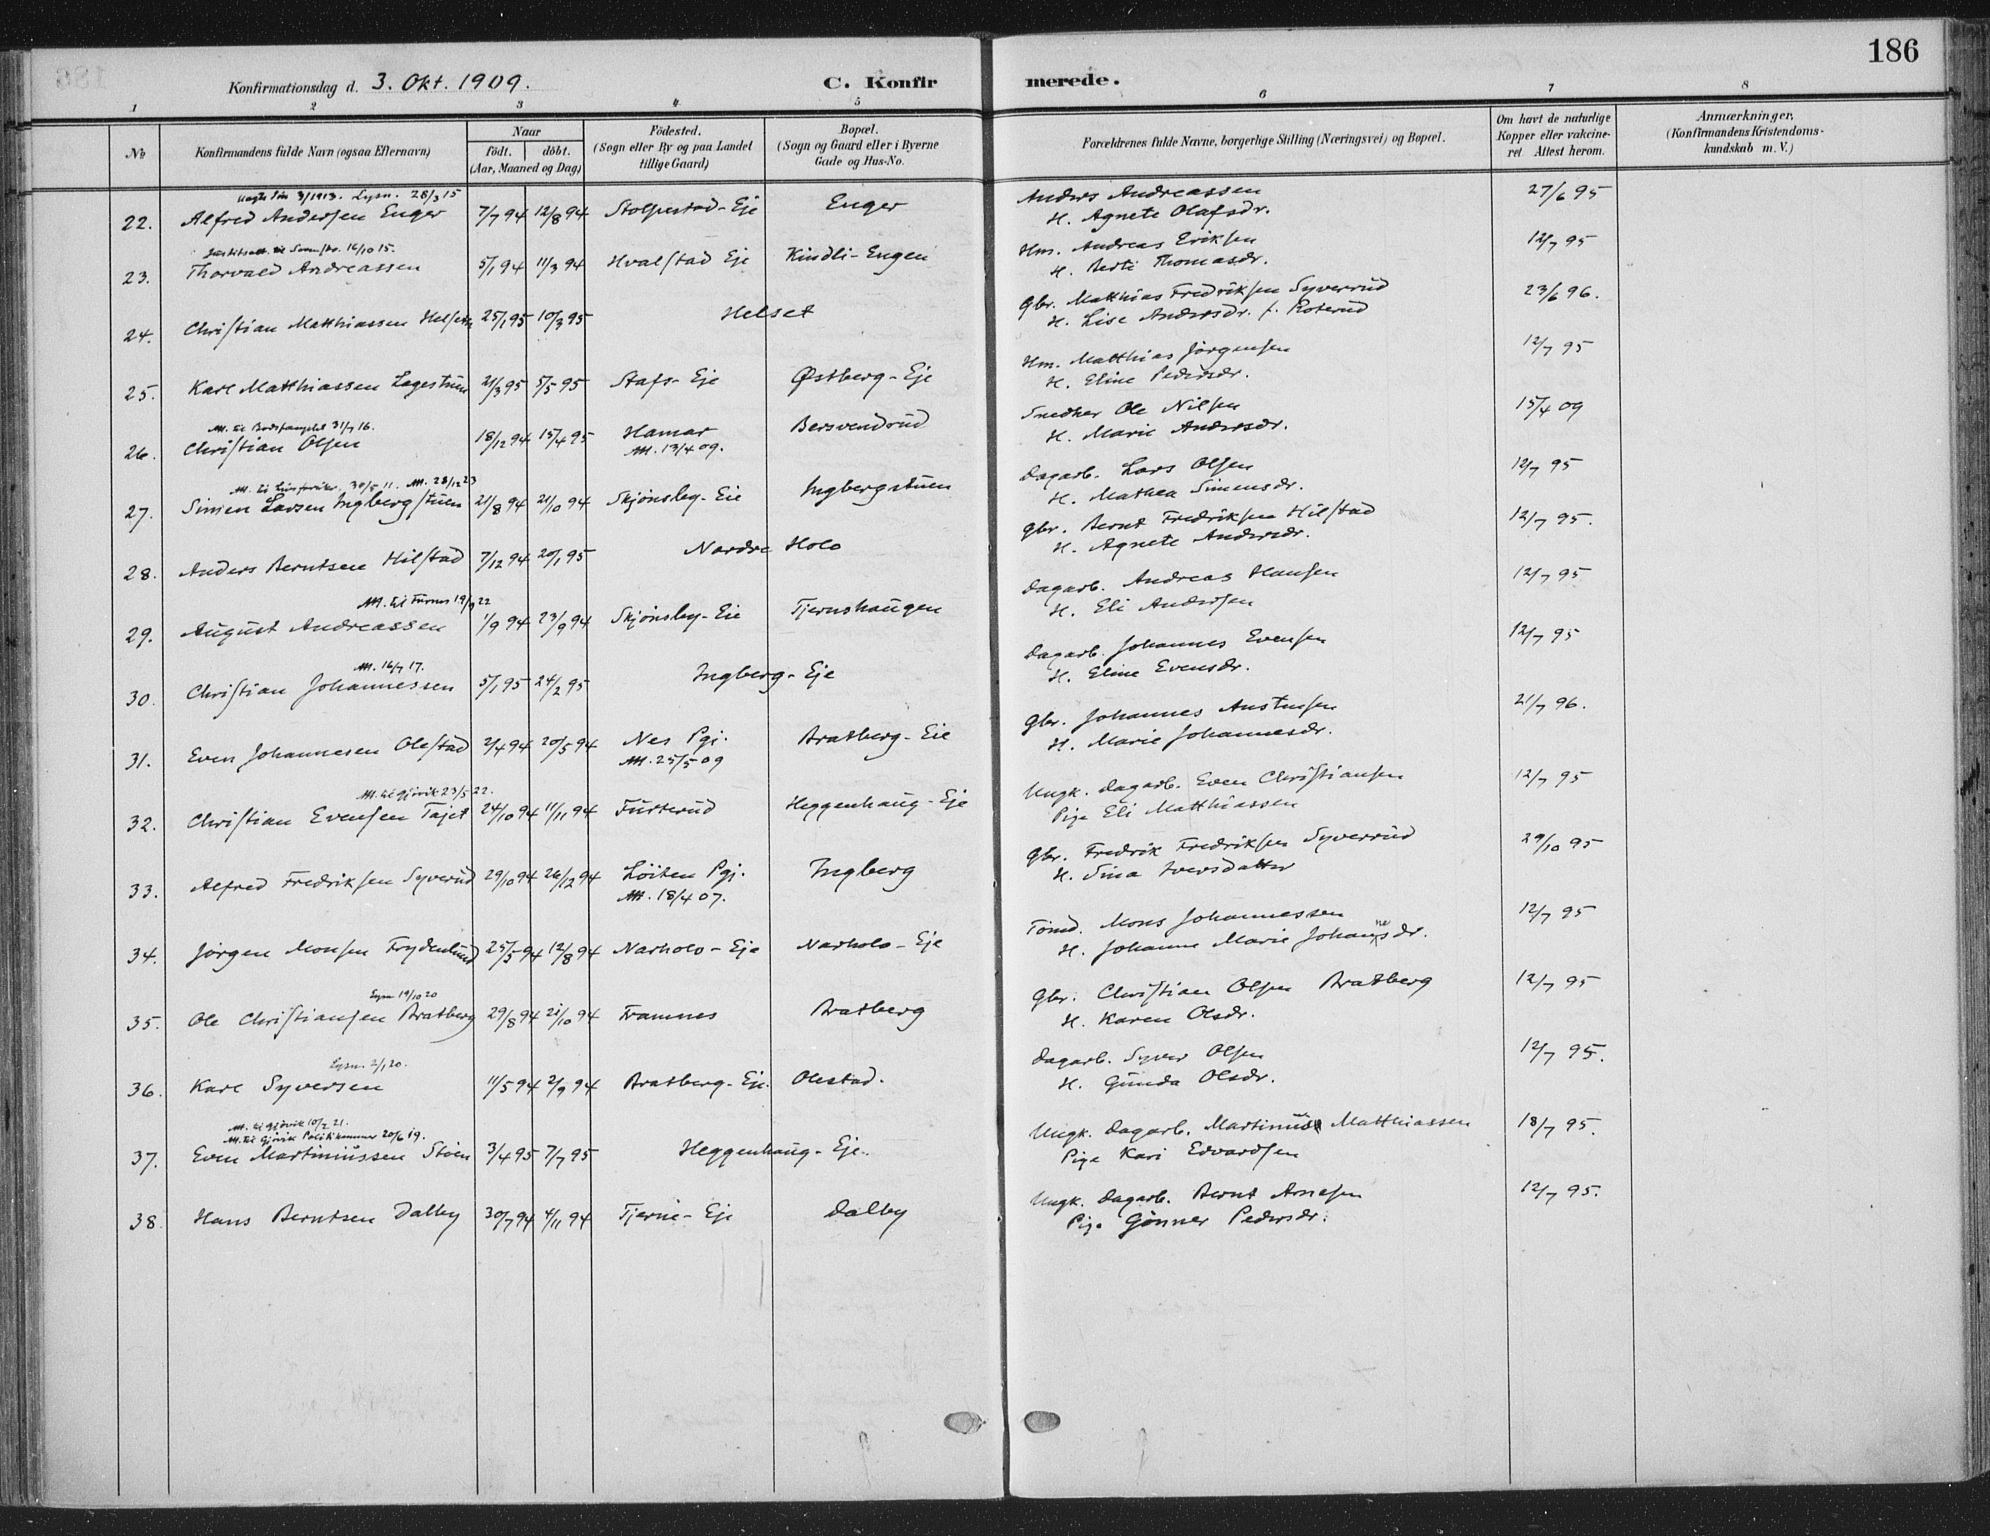 186
Konfirmationsdag d. 3. Okt. 1909. C. Konfirmerede.
1 2 3 4 5 6 7 8
No
Konfirmandens fulde Navn (ogsaa Efternavn)
Naar
födt. döbt.
(Aar, Maaned og Dag)
Födested.
(Sogn eller By og paa Landet
tillige Gaard)
Bopæl.
(Sogn og Gaard eller i Byerne
Gade og Hus-No.
Forældrenes fulde Navne, borgerlige Stilling (Næringsvei) og Bopæl.
Om havt de naturlige
Kopper eller vakcine-
ret. Attest herom.
Anmærkninger,
(Konfirmandens Kristendoms-
kundskab m. V.)
3/1913. Lysn. 28/3 15
22. Alfred Andersen Enger 7/7 94 12/8 94 Stolpestad-Eje Enger Anders Andreassen 27/6 95
H. Agnete Olafsdr.
16/10 15.
23. Thorvald Andreassen 5/1 94 11/3 94 Hvalstad Eje Kindli-Engen Hm. Andreas Eriksen 12/7 95
H. Berte Thomasdr.
24. Christian Matthiassen Helset 25/1 95 10/3 95 Helset Gbr. Matthias Fredriksen Syverrud 23/6 96.
H. Lise Andersdr. f. Koterud
25. Karl Matthiassen Lagestuen 21/3 95 5/5 95 Stafs-Eje Østberg-Eje Hm. Matthias Jörgensen 12/7 95
H. Eline Pedersdr.
Att. til 31/7 16.
26. Christian Olsen 18/12 94 15/4 95 Hamar Bersvendrud Snedker Ole Nilsen 15/4 09
Att. 13/4 09. H. Marie Andersdr.
Att. til 30/5 11. Att. 28/12 23
27. Simen Larsen Ingbergstuen 21/8 94 21/10 94 Skjönsby-Eie Ingbergstuen Dagarb. Lars Olsen 12/7 95
H. Mathea Simensdr.
28. Anders Berntsen Hilstad 7/12 94 20/1 95 Nordre Holo Gbr. Bernt Fredriksen Hilstad 12/7 95.
H. Agnete Andersdr.
Att. til Furnes 19/9 22
29. August Andreassen 1/9 94 23/9 94 Skjönsby-Eie Tjernshaugen Dagarb. Andreas Hansen 12/7 95
H. Eli Andersen
Att. 16/7 17.
30. Christian Johannessen 5/1 95 24/2 95 Ingberg-Eje Dagarb. Johannes Evensen 12/7 95
H. Eline Evensdr.
31. Even Johannesen Olestad 2/4 94 20/5 94 Nes Pgj. Bratberg-Eie Gbr. Johannes Austensen 21/7 96.
Att. 25/5 09 H. Marie Johannesdr.
Att. til Gjövik 23/5 22.
32. Christian Evensen Tajet 24/10 94 11/11 94 Furterud Heggenhaug-Eje Ungk. dagarb. Even Christiansen 12/7 95
Pige Eli Matthiassen
33. Alfred Fredriksen Syverud 29/10 94 26/12 94 Löiten Pgj. Ingberg Gbr. Fredrik Fredriksen Syverrud 29/10 95
Att. 18/4 07. H. Sina Iversdatter
34. Jörgen Monsen Frydenlund 25/5 94 12/8 94 Narholo-Eje Narholo-Eje Tömd. Mons Johannessen 12/7 95
H. Johanne Marie Johannesdr.
Lysn 19/10 20
35. Ole Christiansen Bratberg 29/8 94 21/10 94 Framnes Bratberg Gbr. Christian Olsen Bratberg 12/7 95
H. Karen Olsdr.
Lysn. 2/1 20.
36. Karl Syversen 11/5 94 2/9 94 Bratberg-Eje. Olestad. Dagarb. Syver Olsen 12/7 95.
H. Gunda Olsdr.
Att. til Gjövik 10/2 21.
Att. til Gjövik Politikammer 20/6 19.
37. Even Martiniussen Stöen 3/4 95 7/7 95 Heggenhaug-Eje. Ungk. dagarb. Martinius Matthiassen 18/7 95.
Pige Kari Edvardsen
38. Hans Berntsen Dalby 30/7 94 4/11 94 Tjerne-Eje Dalby Ungk. dagarb. Bernt Arnesen 12/7 95.
Pige Gönner Pedersdr.